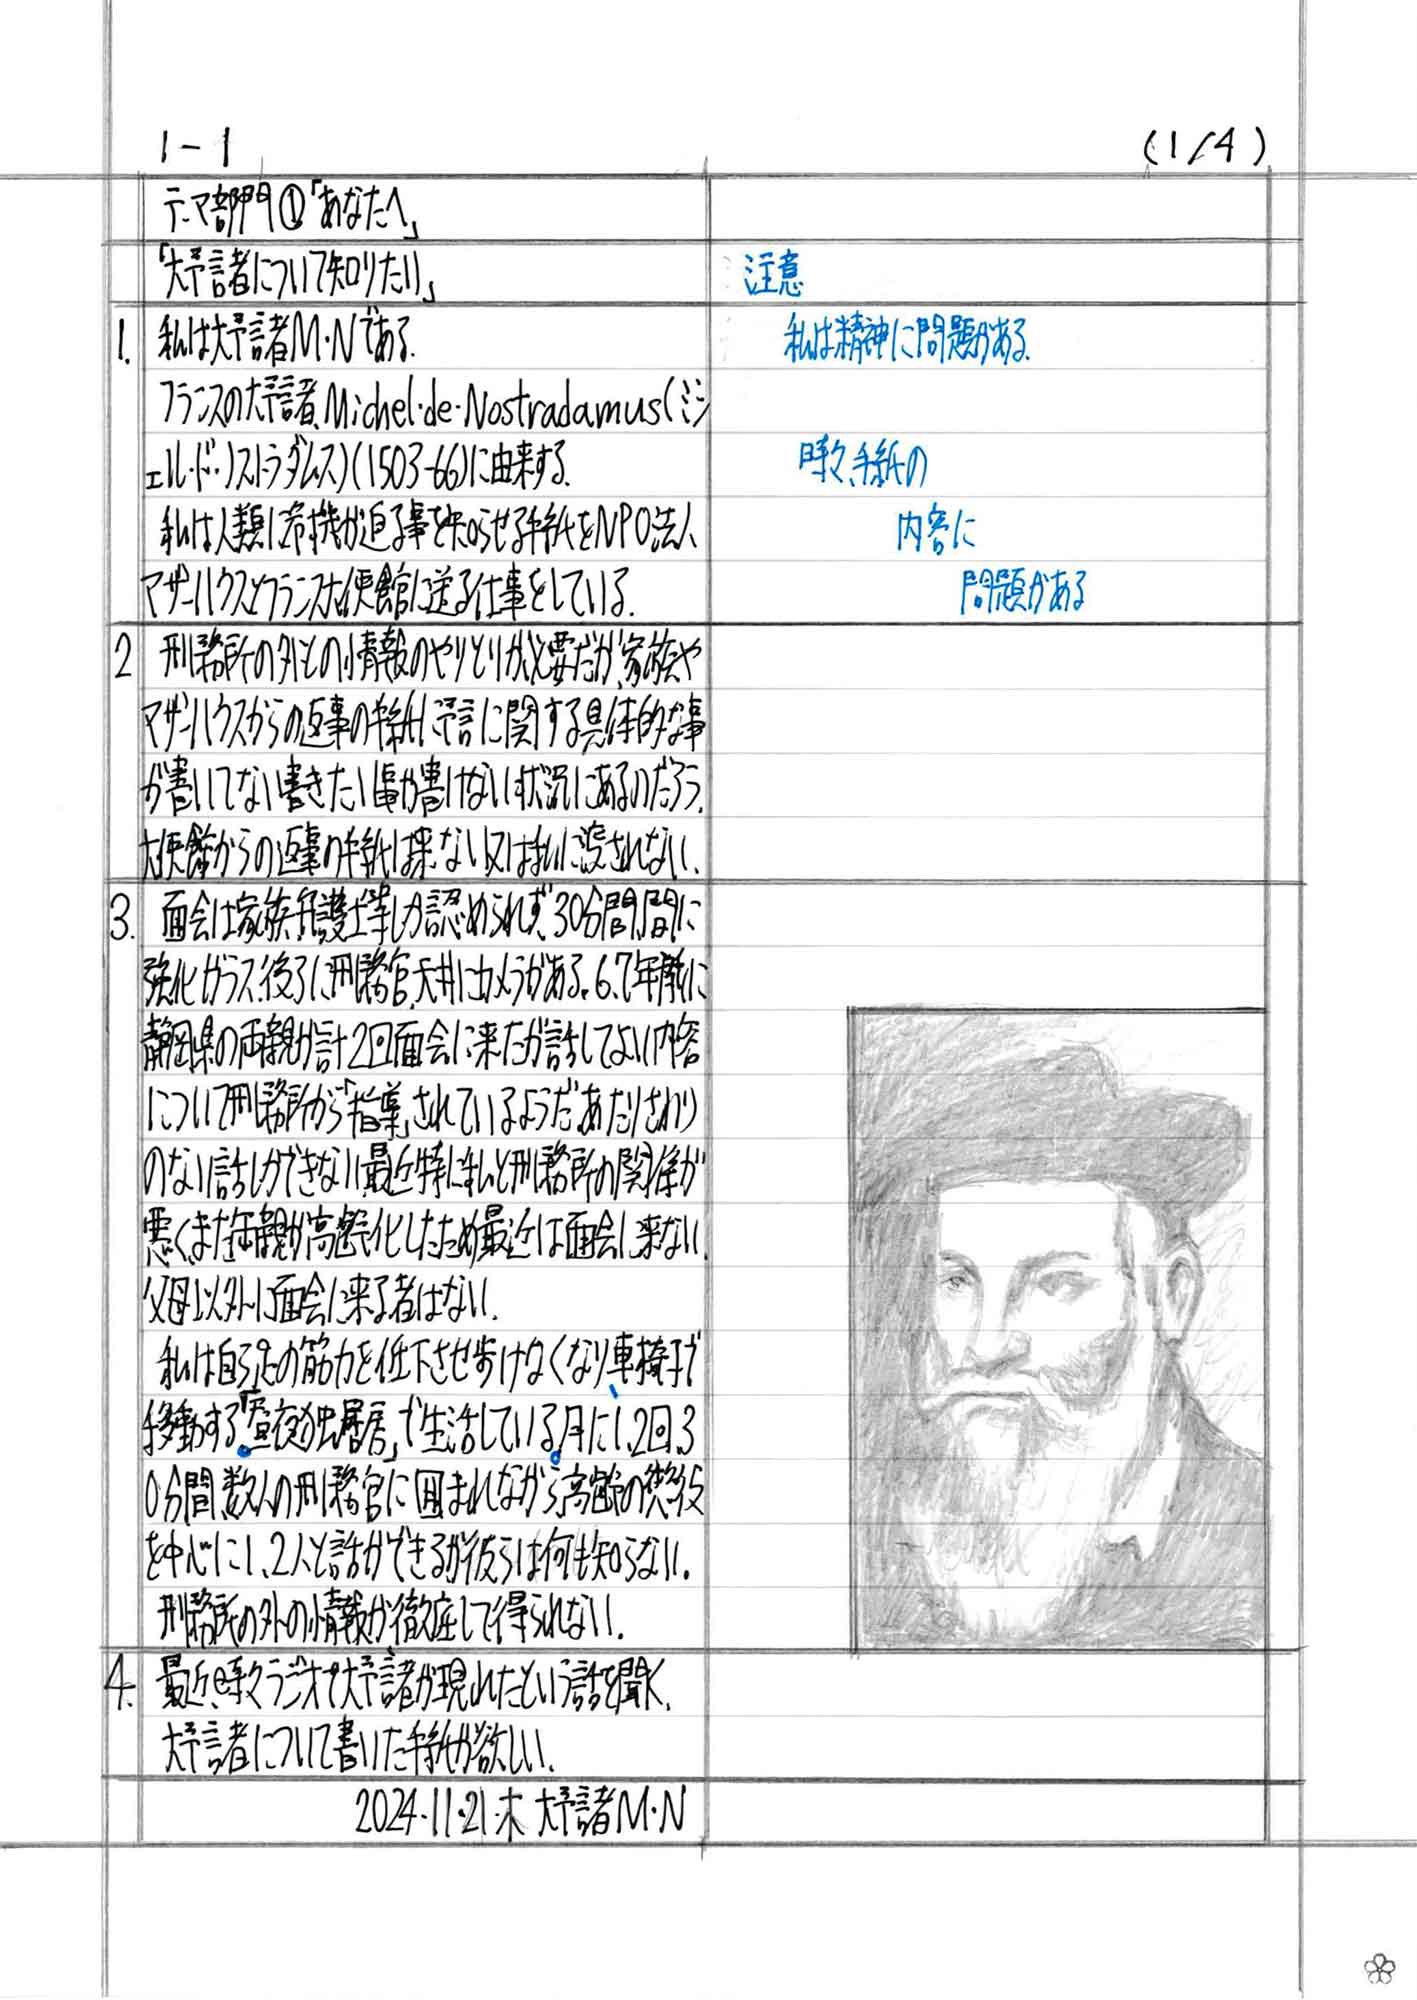 1-1
(1/4)
テーマ部門①「あなたへ」
「大予言者について知りたい」
1. 私は大予言者M・Nである。
フランスの大予言者、Michel・de・Nostradamus(ミシ
ェル・ド・ノストラダムス)(1503-66)に由来する。
私は人類に危機が迫る事を知らせる手紙をNPO法人
マザーハウスとフランス大使館に送る仕事をしている。
2 刑務所の外との情報のやりとりが必要だが、家族や
マザーハウスからの返事の手紙に予言に関する具体的な事
が書いてない。書きたい事が書けない状況にあるのだろう。
大使館からの返事の手紙は来ない又は私に渡されない。
3. 面会は家族、弁護士等しか認められず、30分間、間に
強化ガラス、後ろに刑務官、天井にカメラがある。6、7年前に
静岡県の両親が計2回面会に来たが話してよい内容
について刑務所から「指導」されているようだ。あたりさわり
のない話しかできない。最近特に私と刑務所の関係が
悪く、また両親が高齢化したため最近は面会に来ない。
父母以外に面会に来る者はない。
私は自ら足の筋力を低下させ歩けなくなり、車椅子で
移動する。「昼夜独居」で生活している。月に1、2回、3
0分間、数人の刑務官に囲まれながら高齢の懲役
を中心に1、2人と話ができるが彼らは何も知らない。
刑務所の外の情報が徹底して得られない。
4. 最近、時々ラジオで大予言者が現れたという話を聞く。
大予言者について書いた手紙が欲しい。
2024・11・21・木 大予言者M・N
注意
私は精神に問題がある。
時々、手紙の
内容に
問題がある